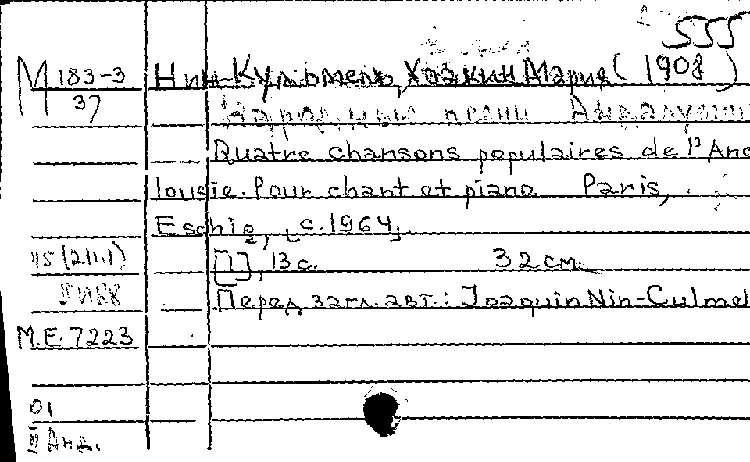 555
М 183-3
37
Нин-Кульмель, Хоакин Мария (1908 )
Народные песни
Quatre chansons populaires de l'And
lousie. Pour chant et piano Paris,
Eschig, [c. 1964].
[1], 13 с. 32 см
Перед загл. авт.: Joaquin Nin-Culmel
М.Е. 7223
01